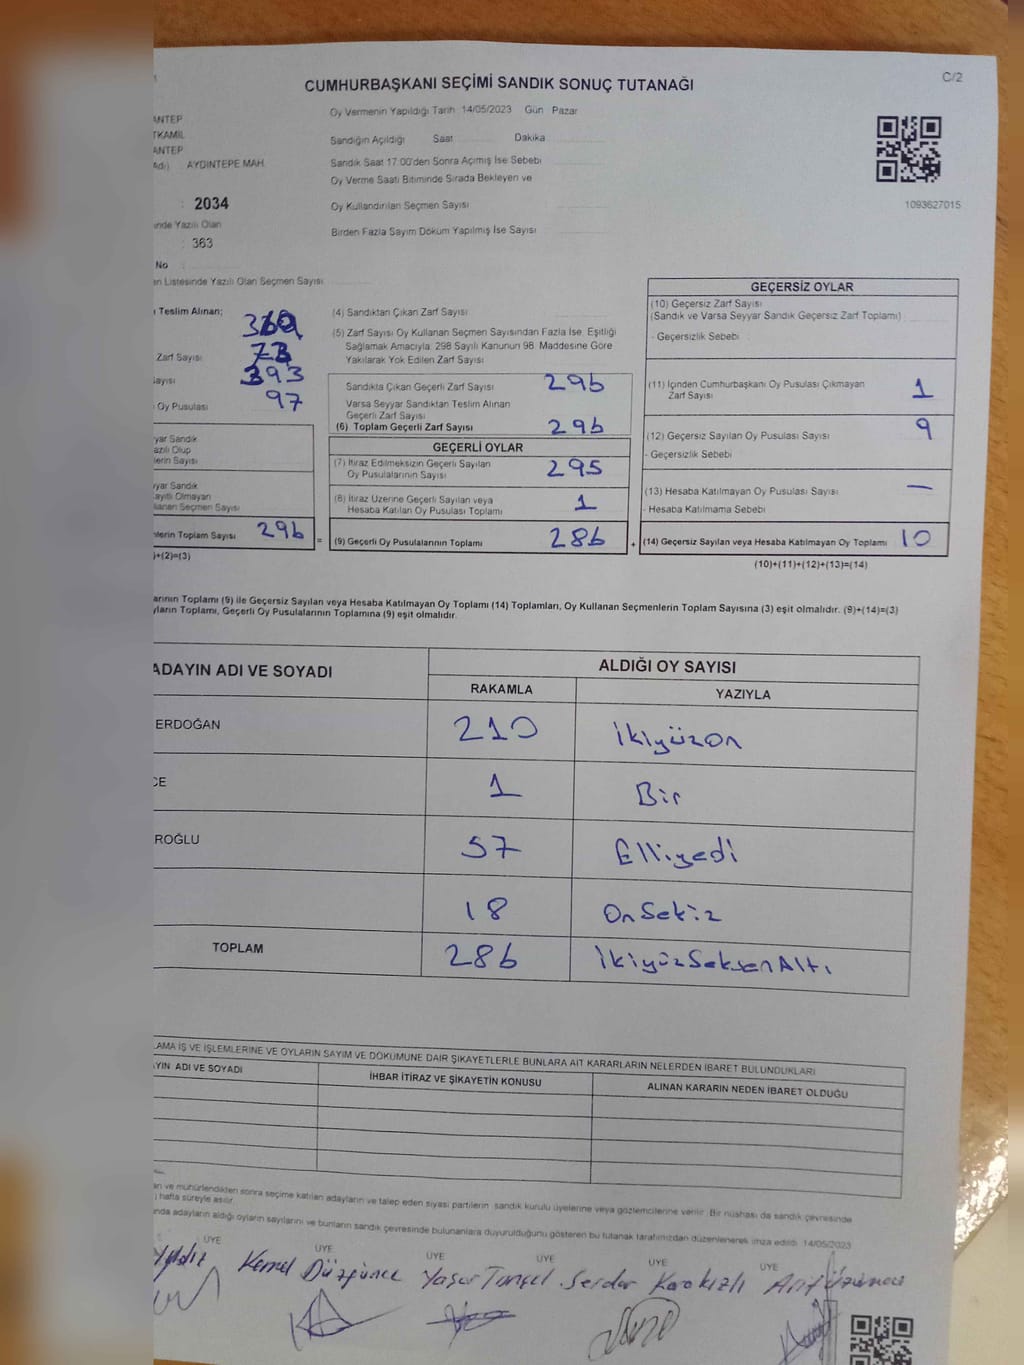 C/2
CUMHURBAŞKANI SEÇİMİ SANDIK SONUÇ TUTANAĞI
ANTEP
TKAMİL
ANTEP
Adı) AYDINTEPE MAH.
: 2034
inde Yazılı Olan
: 363
No
Oy Vermenin Yapıldığı Tarih 14/05/2023 Gün Pazar
Sandığın Açıldığı Saat Dakika
Sandık Saat 17:00'den Sonra Açımış İse Sebebi
Oy Verme Saati Bitiminde Sırada Bekleyen ve
Oy Kullandırılan Seçmen Sayısı
Birden Fazla Sayım Döküm Yapılmış İse Sayısı
1093627015
an Listesinde Yazılı Olan Seçmen Sayısı
ı Teslim Alınan;
Zarf Sayısı
ayısı 393
Oy Pusulası 97
yar Sandık
azılı Olup
lerin Sayısı
yar Sandık
ayıtlı Olmayan
llanan Seçmen Sayısı
nlerin Toplam Sayısı 296
)+(2)=(3)
(4) Sandıktan Çıkan Zarf Sayısı
(5) Zarf Sayısı Oy Kullanan Seçmen Sayısından Fazla İse, Eşitliği
Sağlamak Amacıyla, 298 Sayılı Kanunun 98. Maddesine Göre
Yakılarak Yok Edilen Zarf Sayısı
Sandıkta Çıkan Geçerli Zarf Sayısı 296
Varsa Seyyar Sandıktan Teslim Alınan
Geçerli Zarf Sayısı
(6) Toplam Geçerli Zarf Sayısı 296
GEÇERLİ OYLAR
(7) İtiraz Edilmeksizin Geçerli Sayılan
Oy Pusulalarının Sayısı 295
(8) İtiraz Üzerine Geçerli Sayılan veya
Hesaba Katılan Oy Pusulası Toplamı 1
= (9) Geçerli Oy Pusulalarının Toplamı 286
GEÇERSİZ OYLAR
(10) Geçersiz Zarf Sayısı
(Sandık ve Varsa Seyyar Sandık Geçersiz Zarf Toplamı)
- Geçersizlik Sebebi
(11) İçinden Cumhurbaşkanı Oy Pusulası Çıkmayan
Zarf Sayısı 1
(12) Geçersiz Sayılan Oy Pusulası Sayısı 9
- Geçersizlik Sebebi
(13) Hesaba Katılmayan Oy Pusulası Sayısı —
- Hesaba Katılmama Sebebi
+ (14) Geçersiz Sayılan veya Hesaba Katılmayan Oy Toplamı 10
(10)+(11)+(12)+(13)=(14)
arının Toplamı (9) ile Geçersiz Sayılan veya Hesaba Katılmayan Oy Toplamı (14) Toplamları, Oy Kullanan Seçmenlerin Toplam Sayısına (3) eşit olmalıdır. (9)+(14)=(3)
yların Toplamı, Geçerli Oy Pusulalarının Toplamına (9) eşit olmalıdır.
ADAYIN ADI VE SOYADI
ALDIĞI OY SAYISI
RAKAMLA YAZIYLA
ERDOĞAN 210 ikiyüzon
CE 1 Bir
ROĞLU 57 Elliyedi
18 OnSekiz
TOPLAM 286 ikiyüzSeksenAltı
LAMA İŞ VE İŞLEMLERİNE VE OYLARIN SAYIM VE DÖKÜMÜNE DAİR ŞİKAYETLERLE BUNLARA AİT KARARLARIN NELERDEN İBARET BULUNDUKLARI
YIN ADI VE SOYADI İHBAR İTİRAZ VE ŞİKAYETİN KONUSU ALINAN KARARIN NEDEN İBARET OLDUĞU
an ve mühürlendikten sonra seçime katılan adayların ve talep eden siyasi partilerin sandık kurulu üyelerine veya gözlemcilerine verilir. Bir nüshası da sandık çevresinde
) hafta süreyle asılır.
nda adayların aldığı oyların sayılarını ve bunların sandık çevresinde bulunanlara duyurulduğunu gösteren bu tutanak tarafımızdan düzenlenerek imza edildi. 14/05/2023
ÜYE ÜYE ÜYE ÜYE ÜYE ÜYE
Yıldız Kemal Düzgünce Yaşar Tansel Serdar Karakızlı Arif